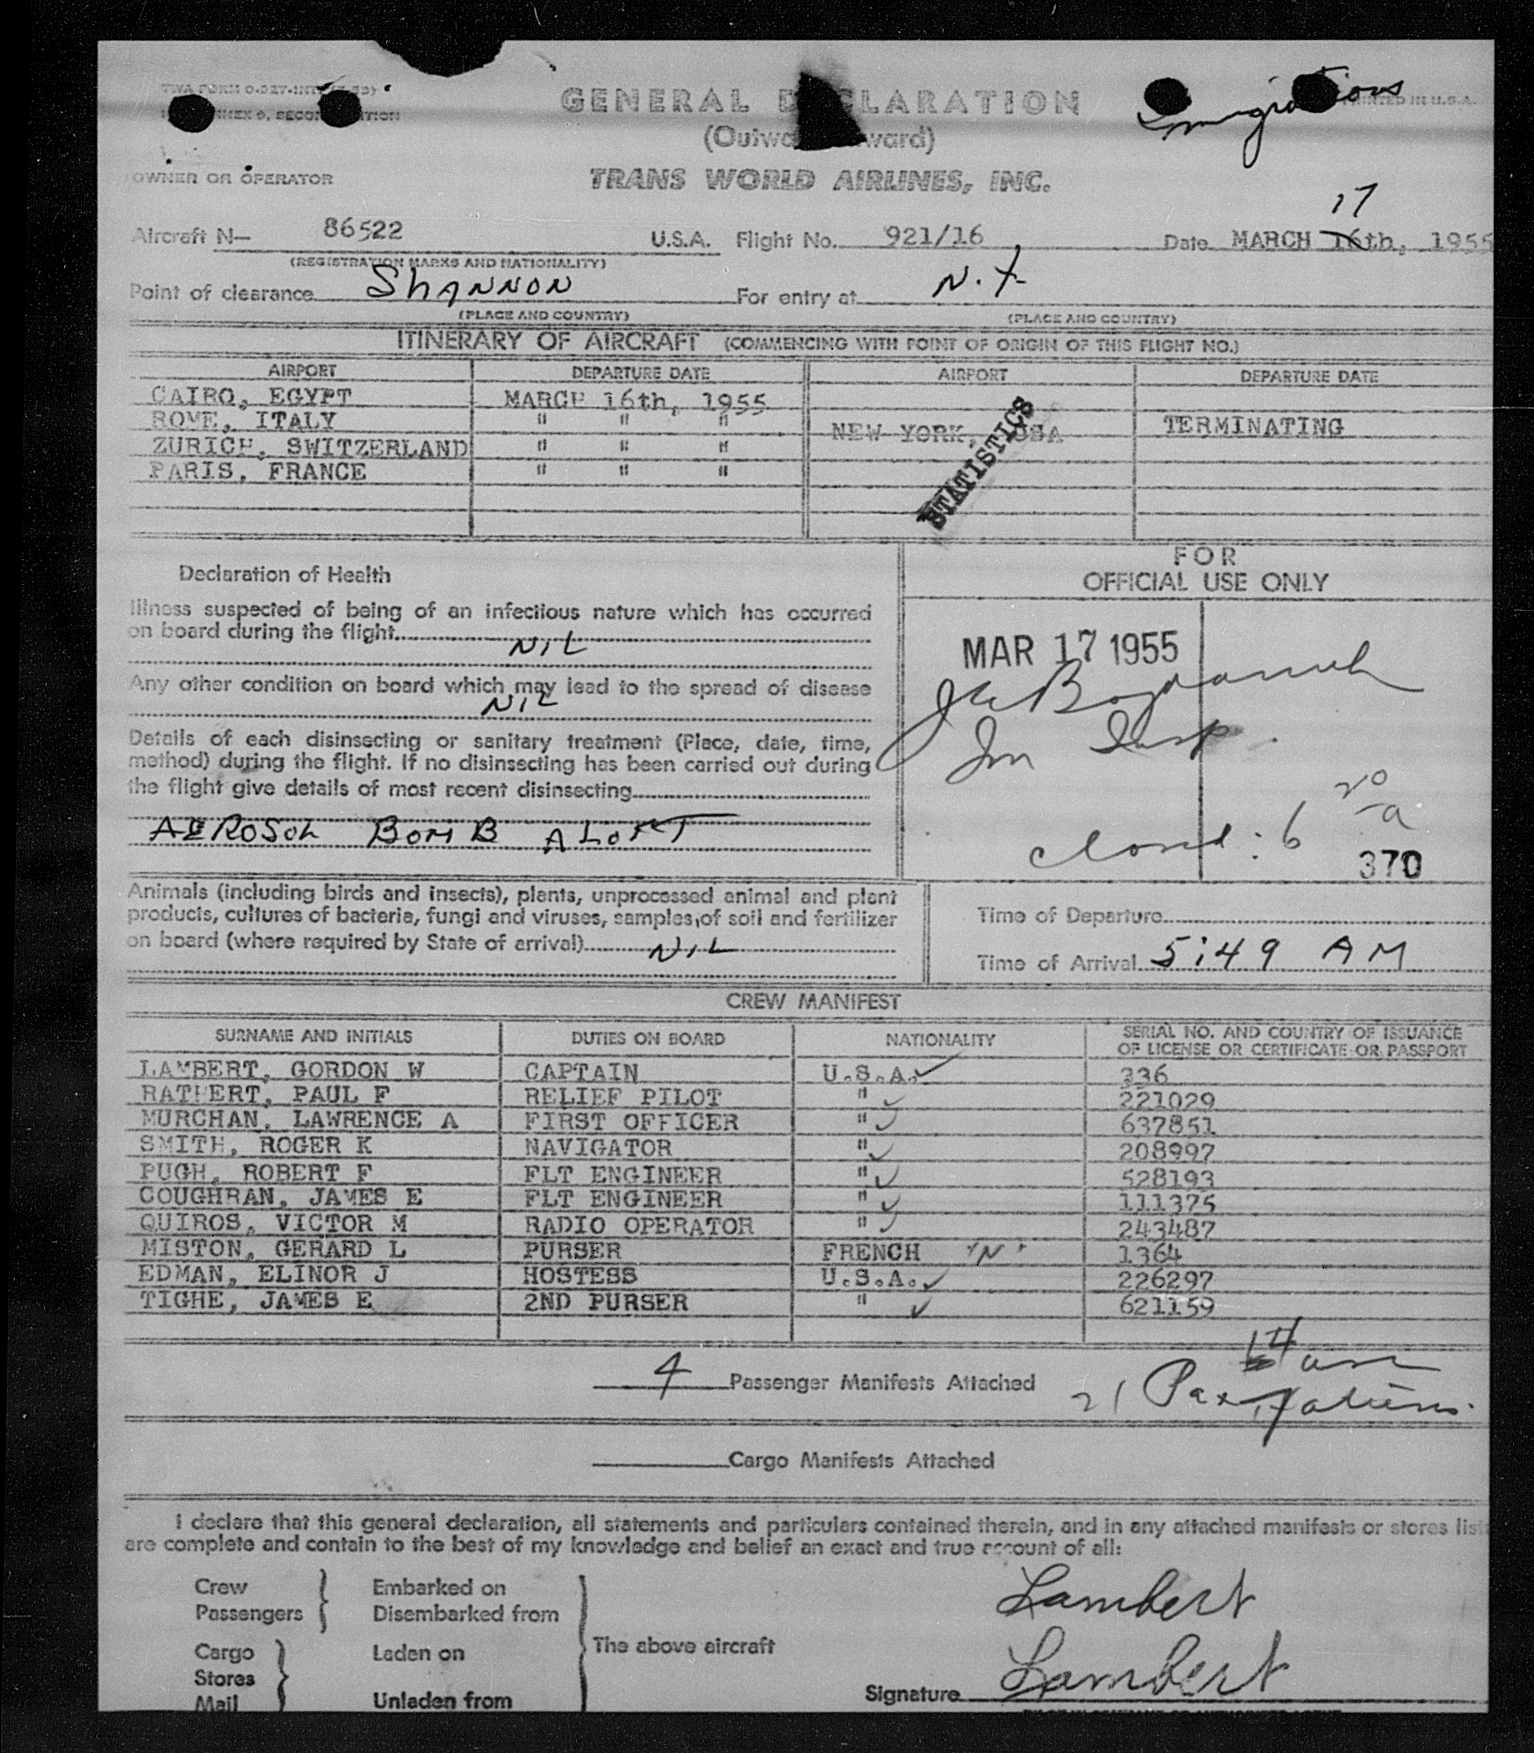 TWA FORM O-927-INT
PRINTED IN U.S.A.
Immigrations
GENERAL DECLARATION
(Outward Inward)
OWNER OR OPERATOR
TRANS WORLD AIRLINES, INC.
17
Aircraft N— 86522 U.S.A. Flight No. 921/16 Date MARCH 16th, 1955
(REGISTRATION MARKS AND NATIONALITY)
Point of clearance SHANNON For entry at N.Y.
(PLACE AND COUNTRY) (PLACE AND COUNTRY)
ITINERARY OF AIRCRAFT (COMMENCING WITH POINT OF ORIGIN OF THIS FLIGHT NO.)
AIRPORT DEPARTURE DATE AIRPORT DEPARTURE DATE
CAIRO, EGYPT MARCH 16th, 1955
ROME, ITALY " " " NEW YORK, USA TERMINATING
ZURICH, SWITZERLAND " " "
PARIS, FRANCE " " "
STATISTICS
Declaration of Health
Illness suspected of being of an infectious nature which has occurred
on board during the flight NIL
Any other condition on board which may lead to the spread of disease
NIL
Details of each disinsecting or sanitary treatment (Place, date, time,
method) during the flight. If no disinsecting has been carried out during
the flight give details of most recent disinsecting
AEROSOL BOMB ALOFT
FOR
OFFICIAL USE ONLY
MAR 17 1955
Im Insp.
closed: 6 20 a
370
Animals (including birds and insects), plants, unprocessed animal and plant
products, cultures of bacteria, fungi and viruses, samples of soil and fertilizer
on board (where required by State of arrival) NIL
Time of Departure
Time of Arrival 5:49 AM
CREW MANIFEST
SURNAME AND INITIALS DUTIES ON BOARD NATIONALITY SERIAL NO. AND COUNTRY OF ISSUANCE
OF LICENSE OR CERTIFICATE OR PASSPORT
LAMBERT, GORDON W CAPTAIN U.S.A. 336
RATHERT, PAUL F RELIEF PILOT " 221029
MURCHAN, LAWRENCE A FIRST OFFICER " 637851
SMITH, ROGER K NAVIGATOR " 208997
PUGH, ROBERT F FLT ENGINEER " 528193
COUGHRAN, JAMES E FLT ENGINEER " 111375
QUIROS, VICTOR M RADIO OPERATOR " 243487
MISTON, GERARD L PURSER FRENCH "N" 1364
EDMAN, ELINOR J HOSTESS U.S.A. 226297
TIGHE, JAMES E 2ND PURSER " 621159
4 Passenger Manifests Attached
14
21 Pax
Cargo Manifests Attached
I declare that this general declaration, all statements and particulars contained therein, and in any attached manifests or stores list
are complete and contain to the best of my knowledge and belief an exact and true account of all:
Crew Embarked on
Passengers Disembarked from
The above aircraft
Cargo Laden on
Stores
Mail Unladen from
Lambert
Signature Lambert